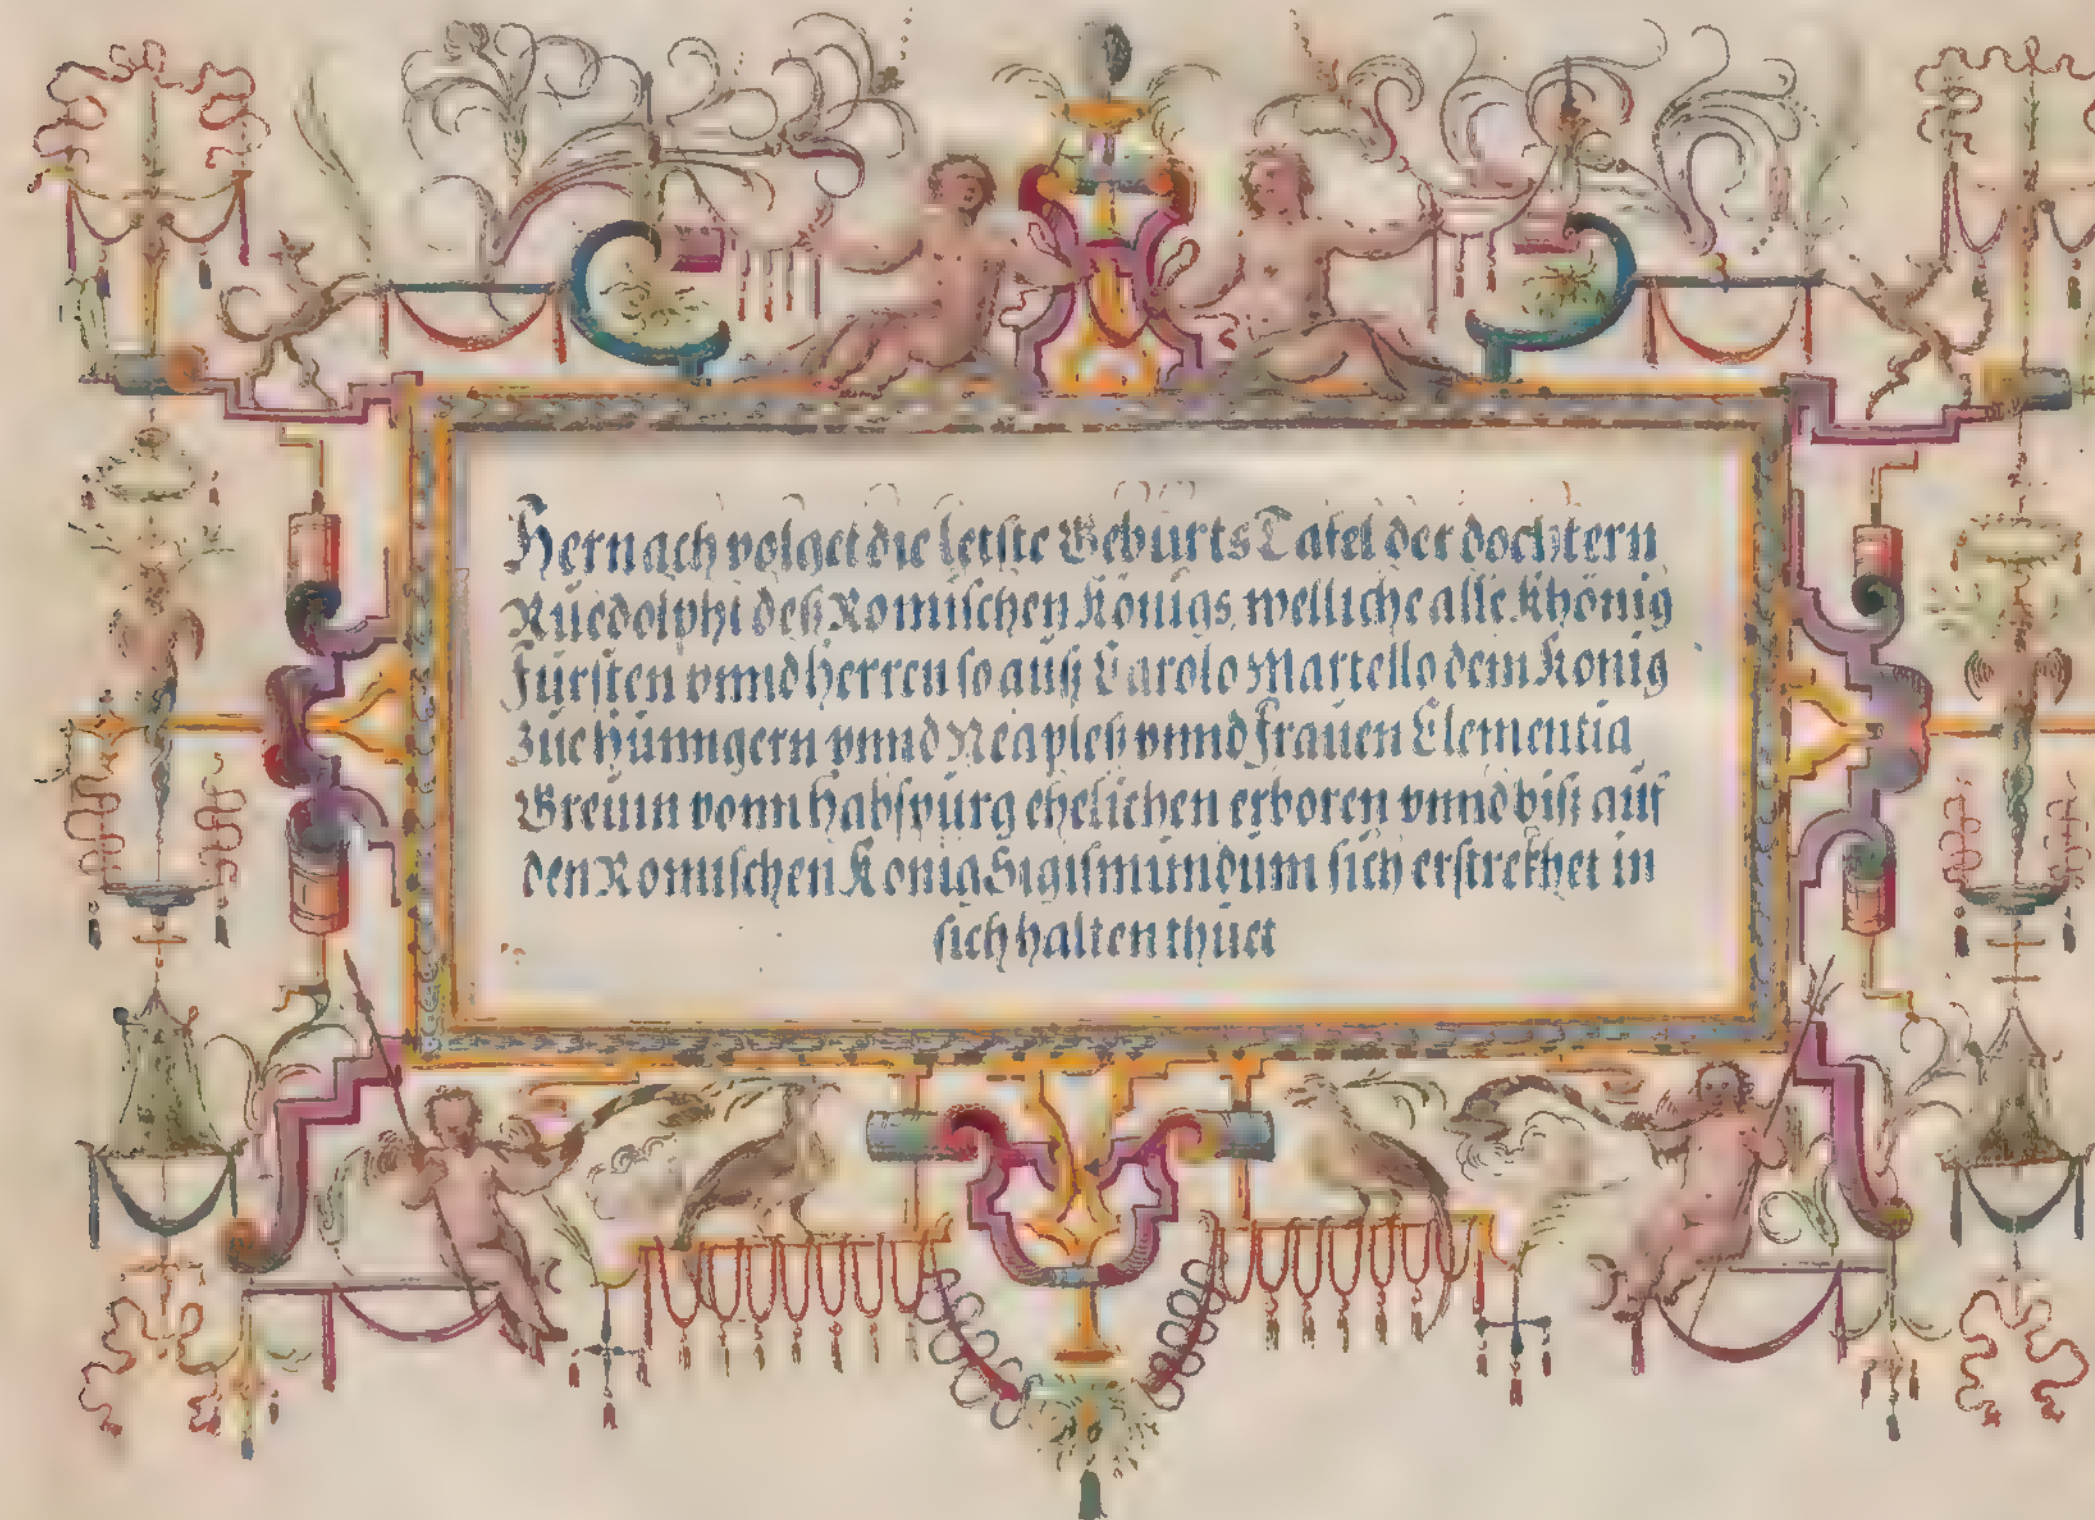 Hernach volget die letste Geburts Tafel der dochtern
Ruedolphi deß Romischen Königs, welliche alle Khönig
Fürsten vnnd Herren so auß Carolo Martello dem König
zue Hunngern vnnd Neapleß vnnd Frauen Clementia
Greuin vonn Habspurg ehelichen erboren vnnd biß auf
den Romischen König Sigismundum sich erstrekhet in
sich halten thuet